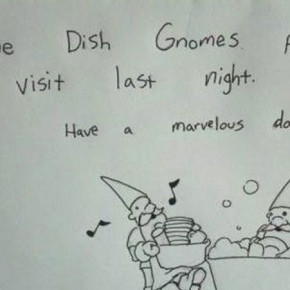 Dish Gnomes
visit last night.
Have a marvelous